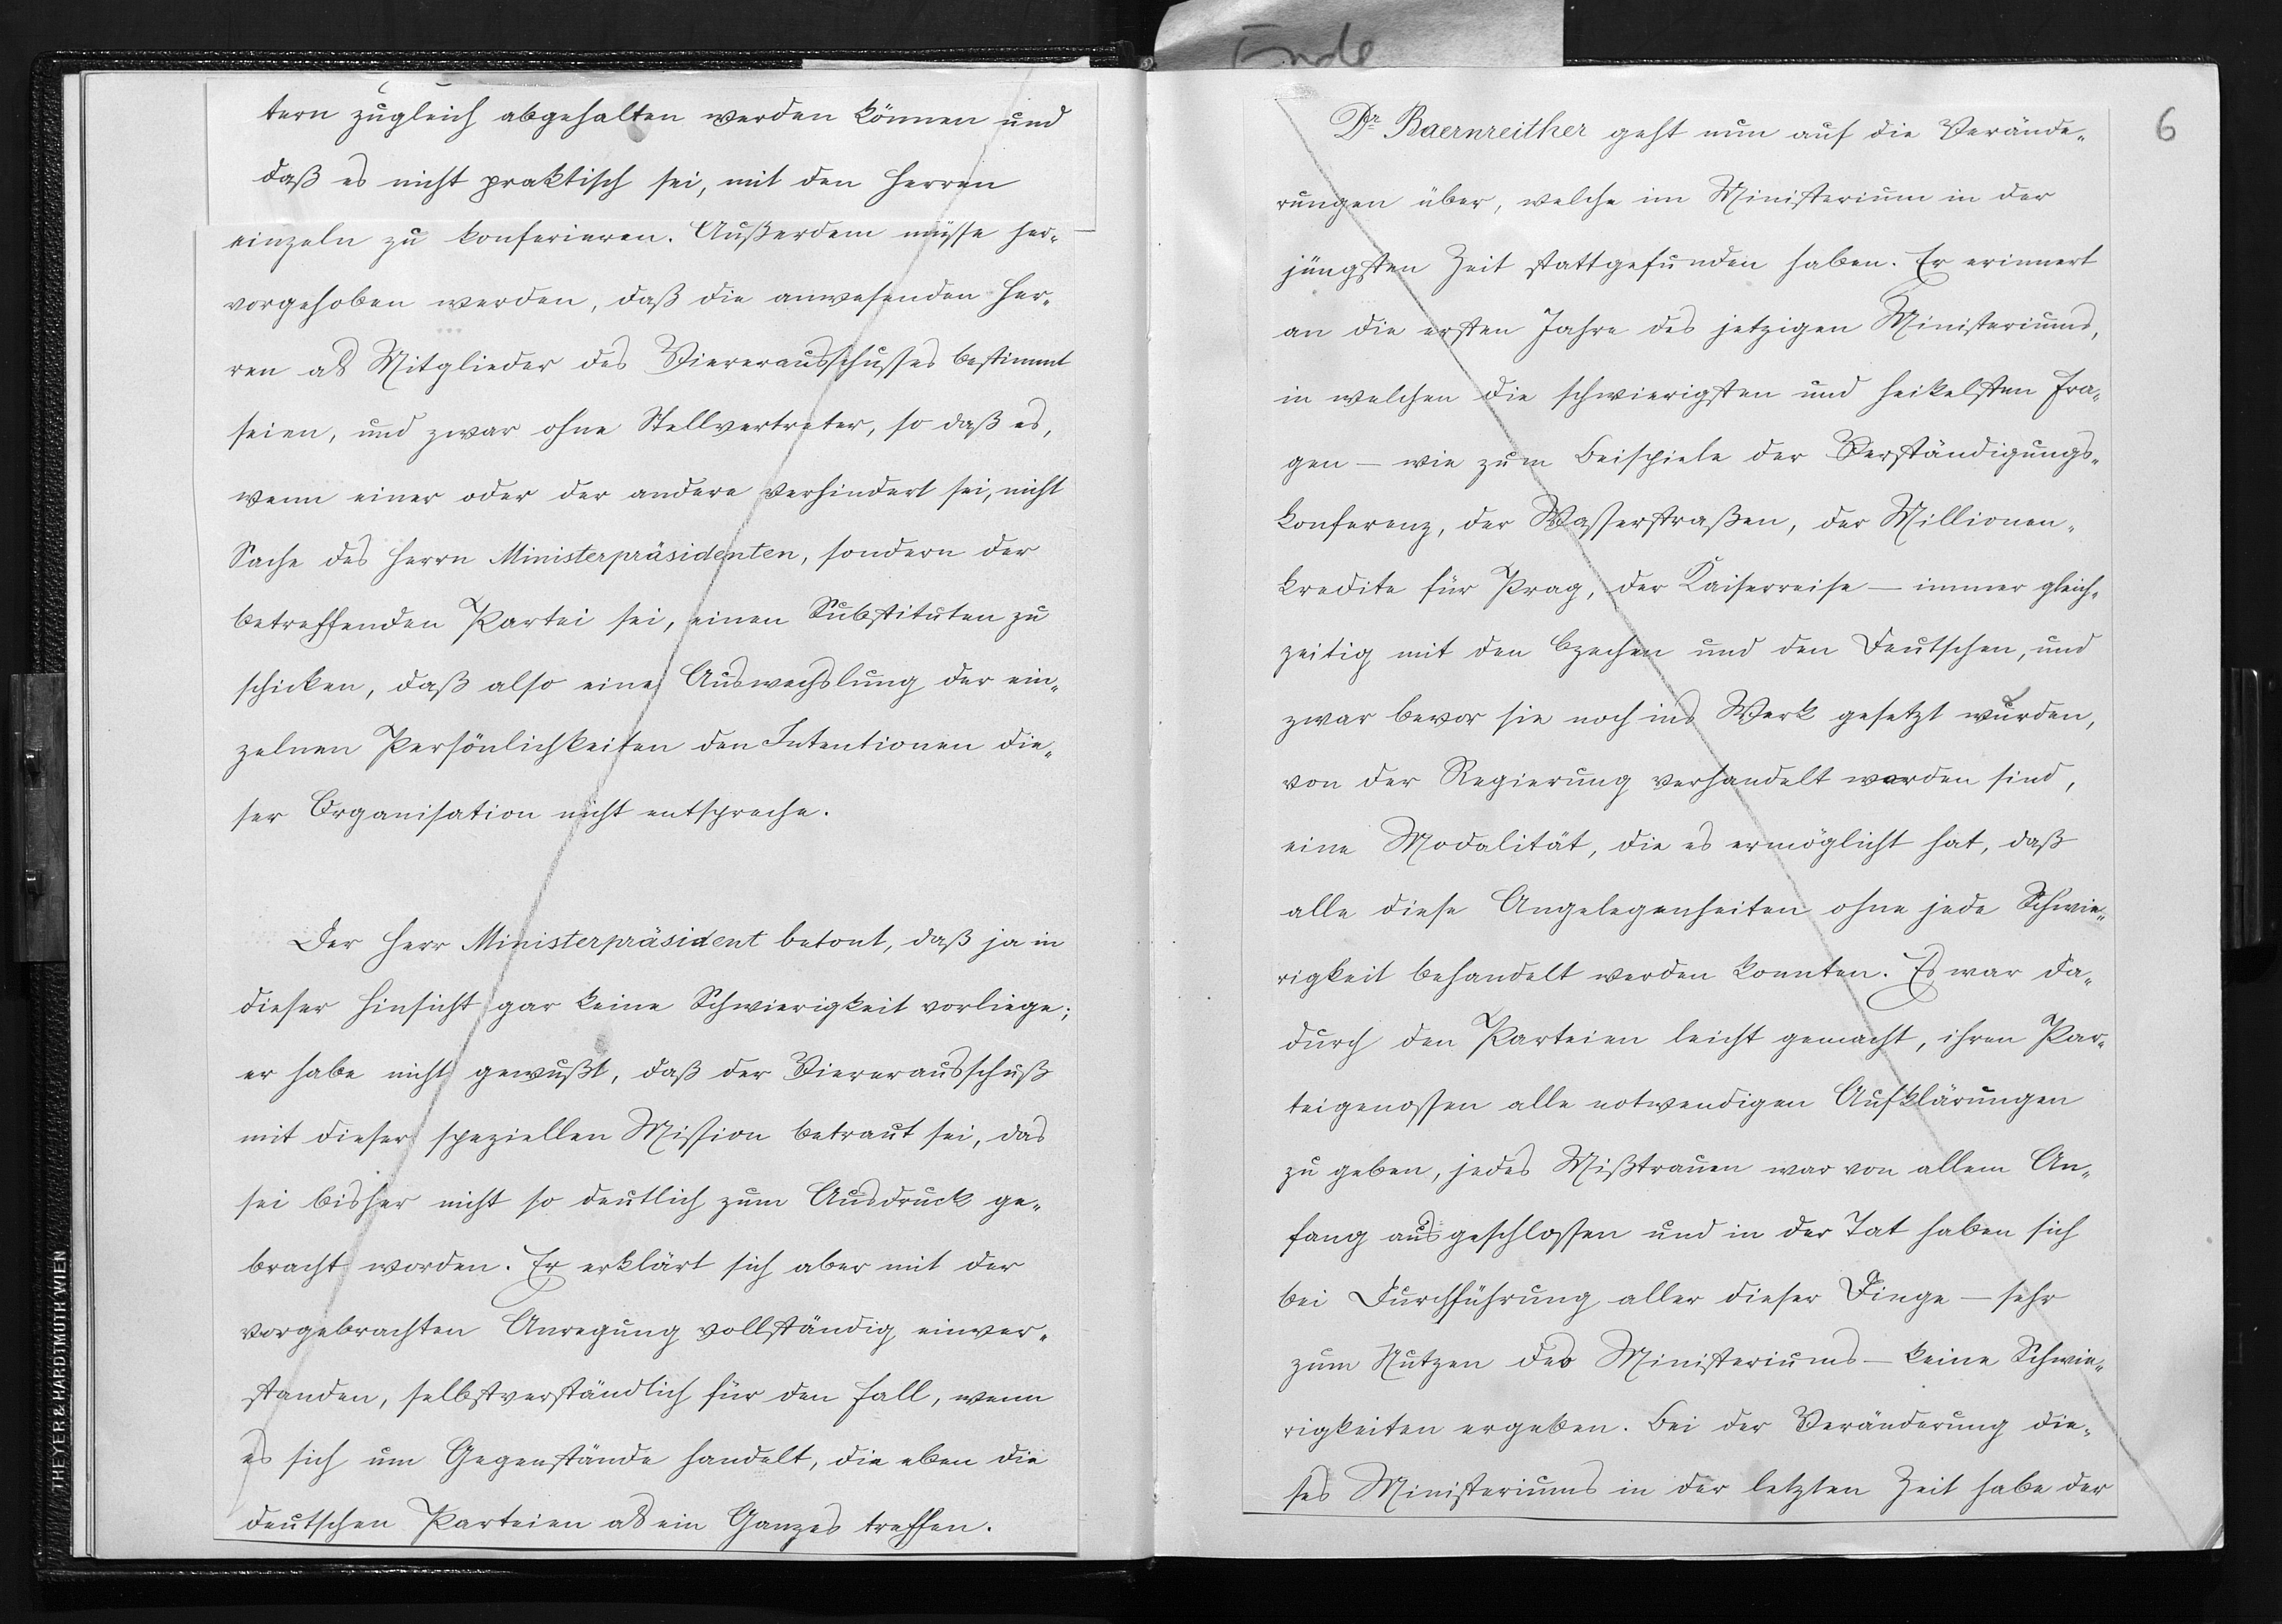 Ende
tern zugleich abgehalten werden können und
daß es nicht praktisch sei, mit den Herren
einzeln zu konferieren. Außerdem müsse her-
vorgehoben werden, daß die anwesenden Her-
ren als Mitglieder des Viererausschusses bestimmt
seien, und zwar ohne Stellvertreter, so daß es,
wenn einer oder der andere verhindert sei, nicht
Sache des Herrn Ministerpräsidenten, sondern der
betreffenden Partei sei, einen Substituten zu
schicken, daß also eine Auswechslung der ein-
zelnen Persönlichkeiten den Intentionen die-
ser Organisation nicht entspreche.
Der Herr Ministerpräsident betont, daß ja in
dieser Hinsicht gar keine Schwierigkeit vorliege;
er habe nicht gewußt, daß der Viererausschuß
mit dieser speziellen Mission betraut sei, das
sei bisher nicht so deutlich zum Ausdruck ge-
bracht worden. Er erklärt sich aber mit der
vorgebrachten Anregung vollständig einver-
standen, selbstverständlich für den Fall, wenn
es sich um Gegenstände handelt, die eben die
deutschen Parteien als ein Ganzes treffen.
THEYER & HARDTMUTH WIEN
6
Dr Baernreither geht nun auf die Verände-
rungen über, welche im Ministerium in der
jüngsten Zeit stattgefunden haben. Er erinnert
an die ersten Jahre des jetzigen Ministeriums,
in welchen die schwierigsten und heikelsten Fra-
gen — wie zum Beispiele der Verständigungs-
konferenz, der Wasserstraßen, der Millionen-
kredite für Prag, der Kaiserreise — immer gleich-
zeitig mit den Czechen und den Deutschen, und
zwar bevor sie noch ins Werk gesetzt wurden,
von der Regierung verhandelt worden sind,
eine Modalität, die es ermöglicht hat, daß
alle diese Angelegenheiten ohne jede Schwie-
rigkeit behandelt werden konnten. Es war da-
durch den Parteien leicht gemacht, ihren Par-
teigenossen alle notwendigen Aufklärungen
zu geben, jedes Mißtrauen war von allem An-
fang ausgeschlossen und in der Tat haben sich
bei Durchführung aller dieser Dinge — sehr
zum Nutzen des Ministeriums — keine Schwie-
rigkeiten ergeben. Bei der Veränderung die-
ses Ministeriums in der letzten Zeit habe der